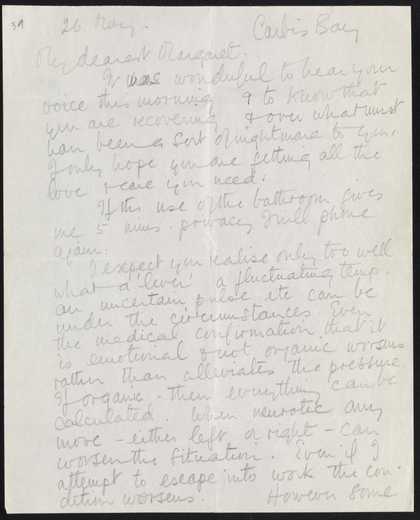 39
26 May.
Carbis Bay
My dearest Margaret.
It was wonderful to hear your
voice this morning & to know that
you are recovering & over what must
have been a sort of nightmare to you,
I only hope you are getting all the
love & care you need.
If this use of the bathroom gives
me 5 mins. privacy I will phone
again.
I expect you realise only too well
what a 'lever' a fluctuating temp.
an uncertain pulse etc can be
under the circumstances. Even
the medical confirmation that it
is emotional & not organic worsens
rather than alleviates the pressure.
If organic - then everything can be
calculated. When neurotic any
move - either left or right - can
worsen the situation. Even if I
attempt to escape into work the con-
dition worsens. However some